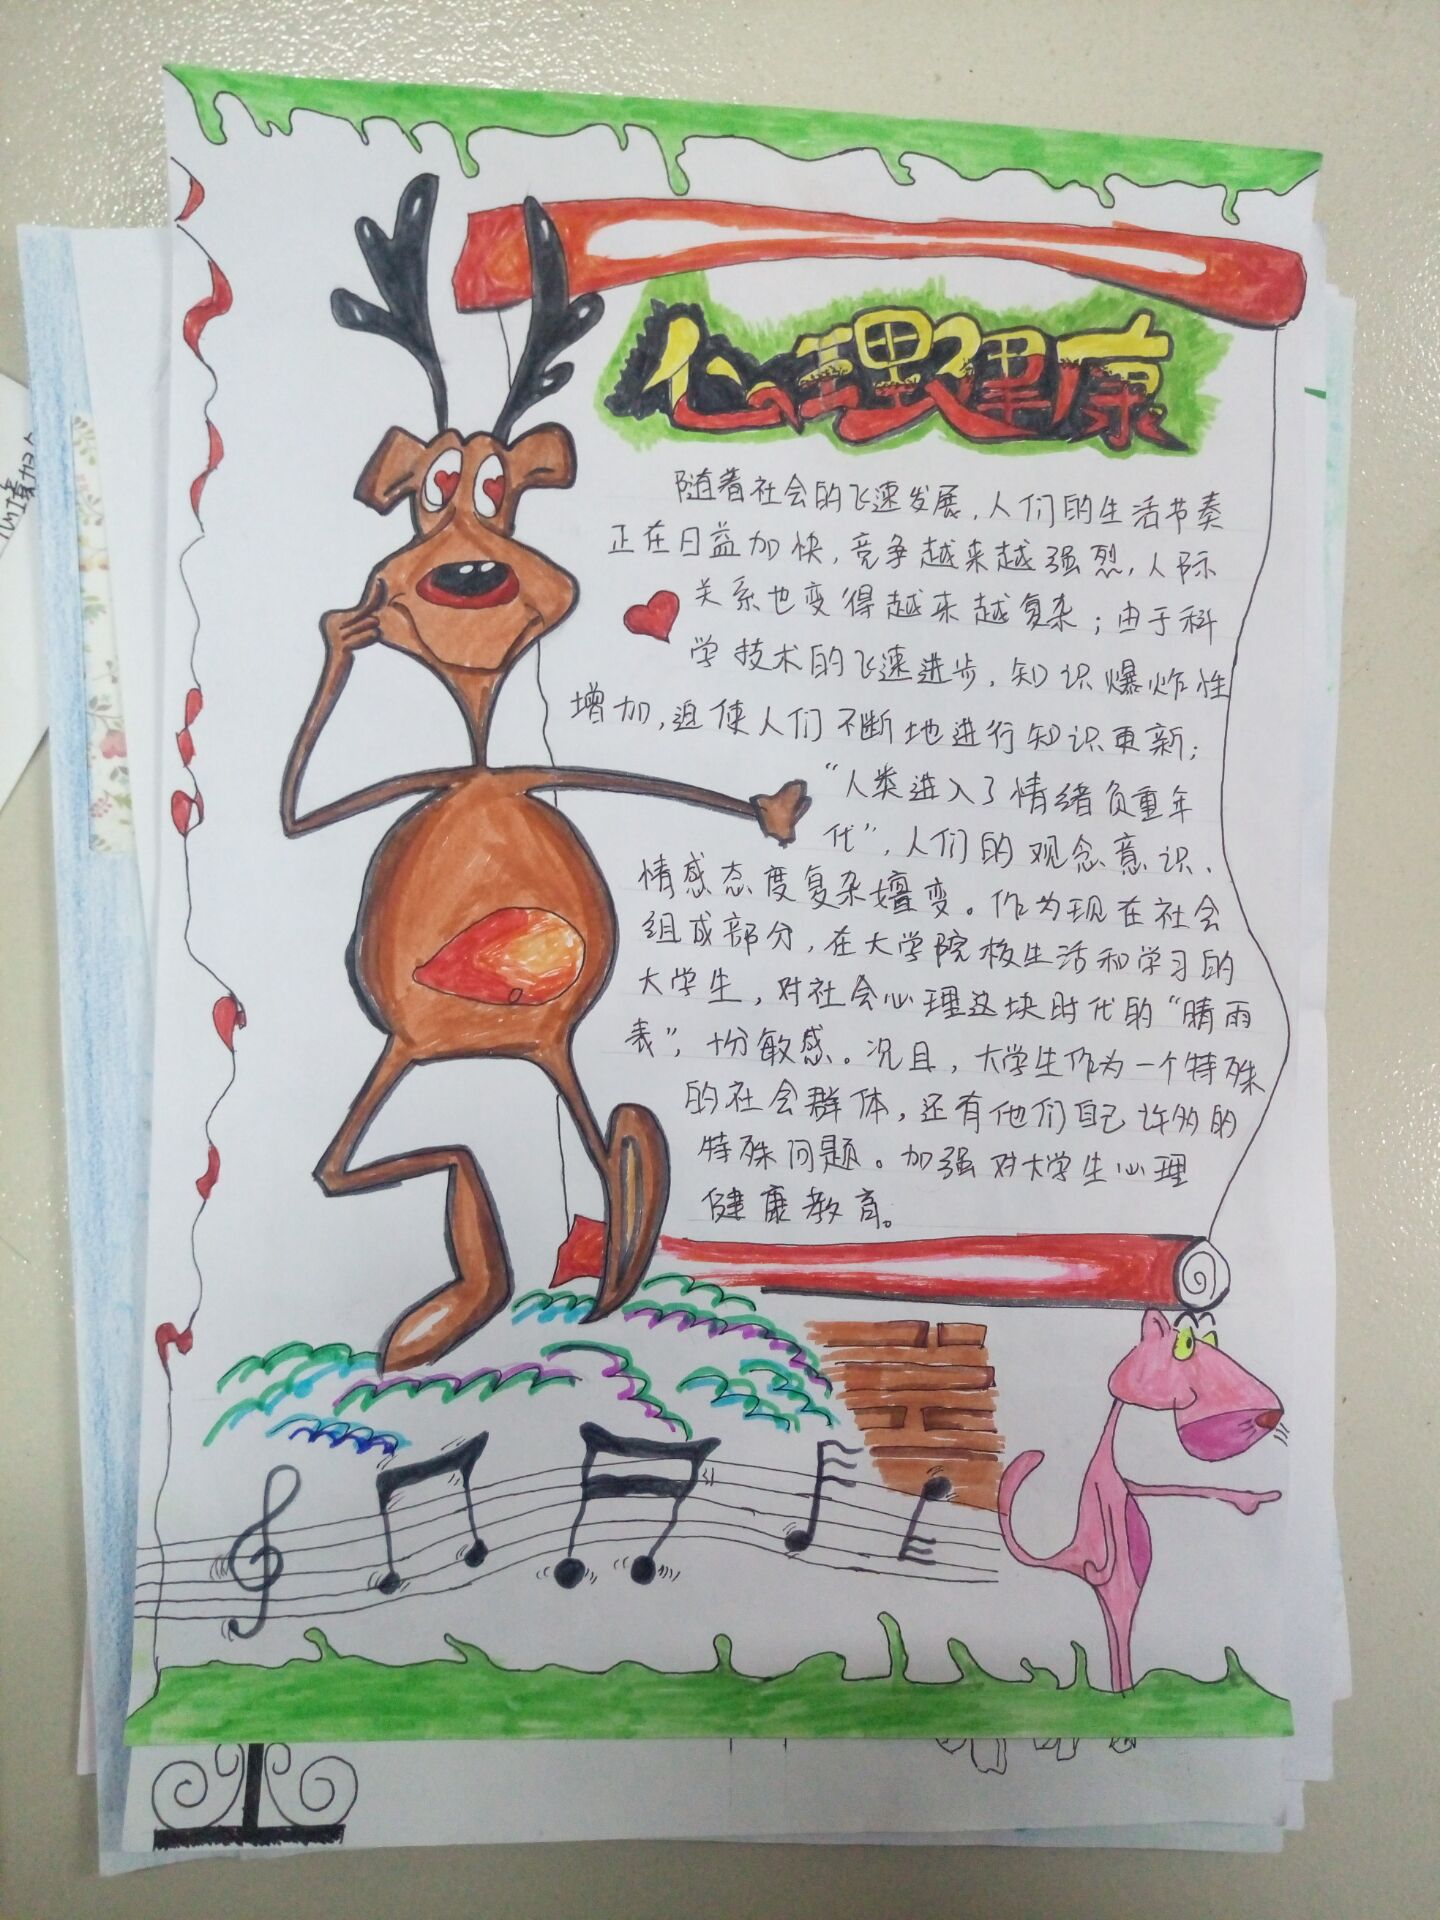 心理健康
随着社会的飞速发展，人们的生活节奏
正在日益加快，竞争越来越强烈，人际
关系也变得越来越复杂；由于科
学技术的飞速进步，知识爆炸性
增加，迫使人们不断地进行知识更新；
“人类进入了情绪负重年
代”，人们的观念意识、
情感态度复杂嬗变。作为现在社会
组成部分，在大学院校生活和学习的
大学生，对社会心理这块时代的“晴雨
表”，十分敏感。况且，大学生作为一个特殊
的社会群体，还有他们自己许多的
特殊问题。加强对大学生心理
健康教育。